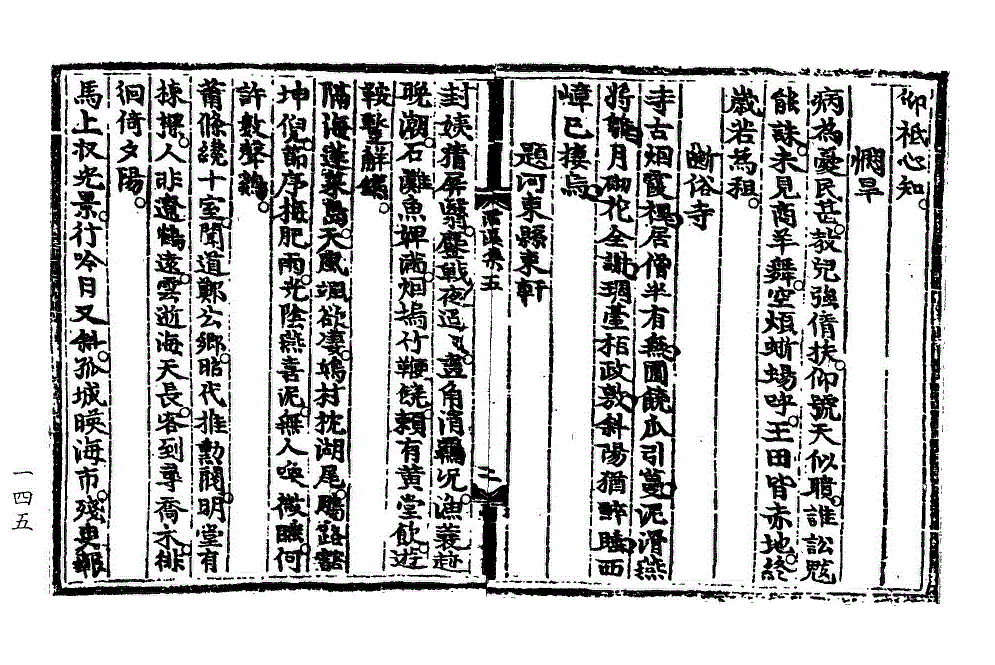 仰祗心知。
憫旱
病為憂民甚。教兒強傅扶。仰號天似聵。誰訟魃
能誅。未見商羊舞。空煩蜥蜴呼。王田皆赤地。終
歲若為租。
斷俗寺
寺古烟霞裡。居僧半有無。園饒瓜引蔓。泥滑燕
將雛。月砌花全訛。琱臺栢政敷。斜陽猶醉睡。西
嶂已棲烏。
題河東縣東軒
封姨猜屏翳。鏖戰夜迢迢。畫角清羈况。漁蓑赴
晚潮。石灘魚婢滿。烟塢竹鞭饒。賴有黃堂飲。遊
鞍暫解鑣。
隔海蓬萊島。天風颯欲凄。塢村枕湖尾。鵰路豁
坤倪。節序梅肥雨。光陰燕喜泥。無人喚薇賤。何
許數聲鷄。
蕭條繞十室。聞道鄭公鄉。昭代推勳閥。明堂有
揀擇。人非遼鶴遠。雲逝海天長。客到尋喬木。徘
徊倚夕陽。
馬上收光景。行吟日又斜。孤城暎海市。殘吏報
濯溪集五
二
一四五